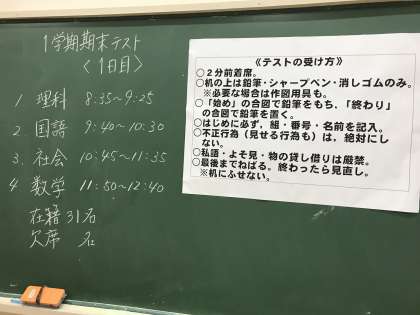 1学期期末テスト
〈1日目〉
1 理科 8:35~9:25
2 国語 9:40~10:30
3. 社会 10:45~11:35
4 数学 11:50~12:40
在籍31名
欠席 名
《テストの受け方》
○2分前着席。
○机の上は鉛筆・シャープペン・消しゴムのみ。
※必要な場合は作図用具も。
○「始め」の合図で鉛筆をもち、「終わり」
の合図で鉛筆を置く。
○はじめに必ず，組・番号・名前を記入。
○不正行為（見せる行為も）は，絶対にし
ない。
○私語・よそ見・物の貸し借りは厳禁。
○最後までねばる。終わったら見直し。
※机にふせない。